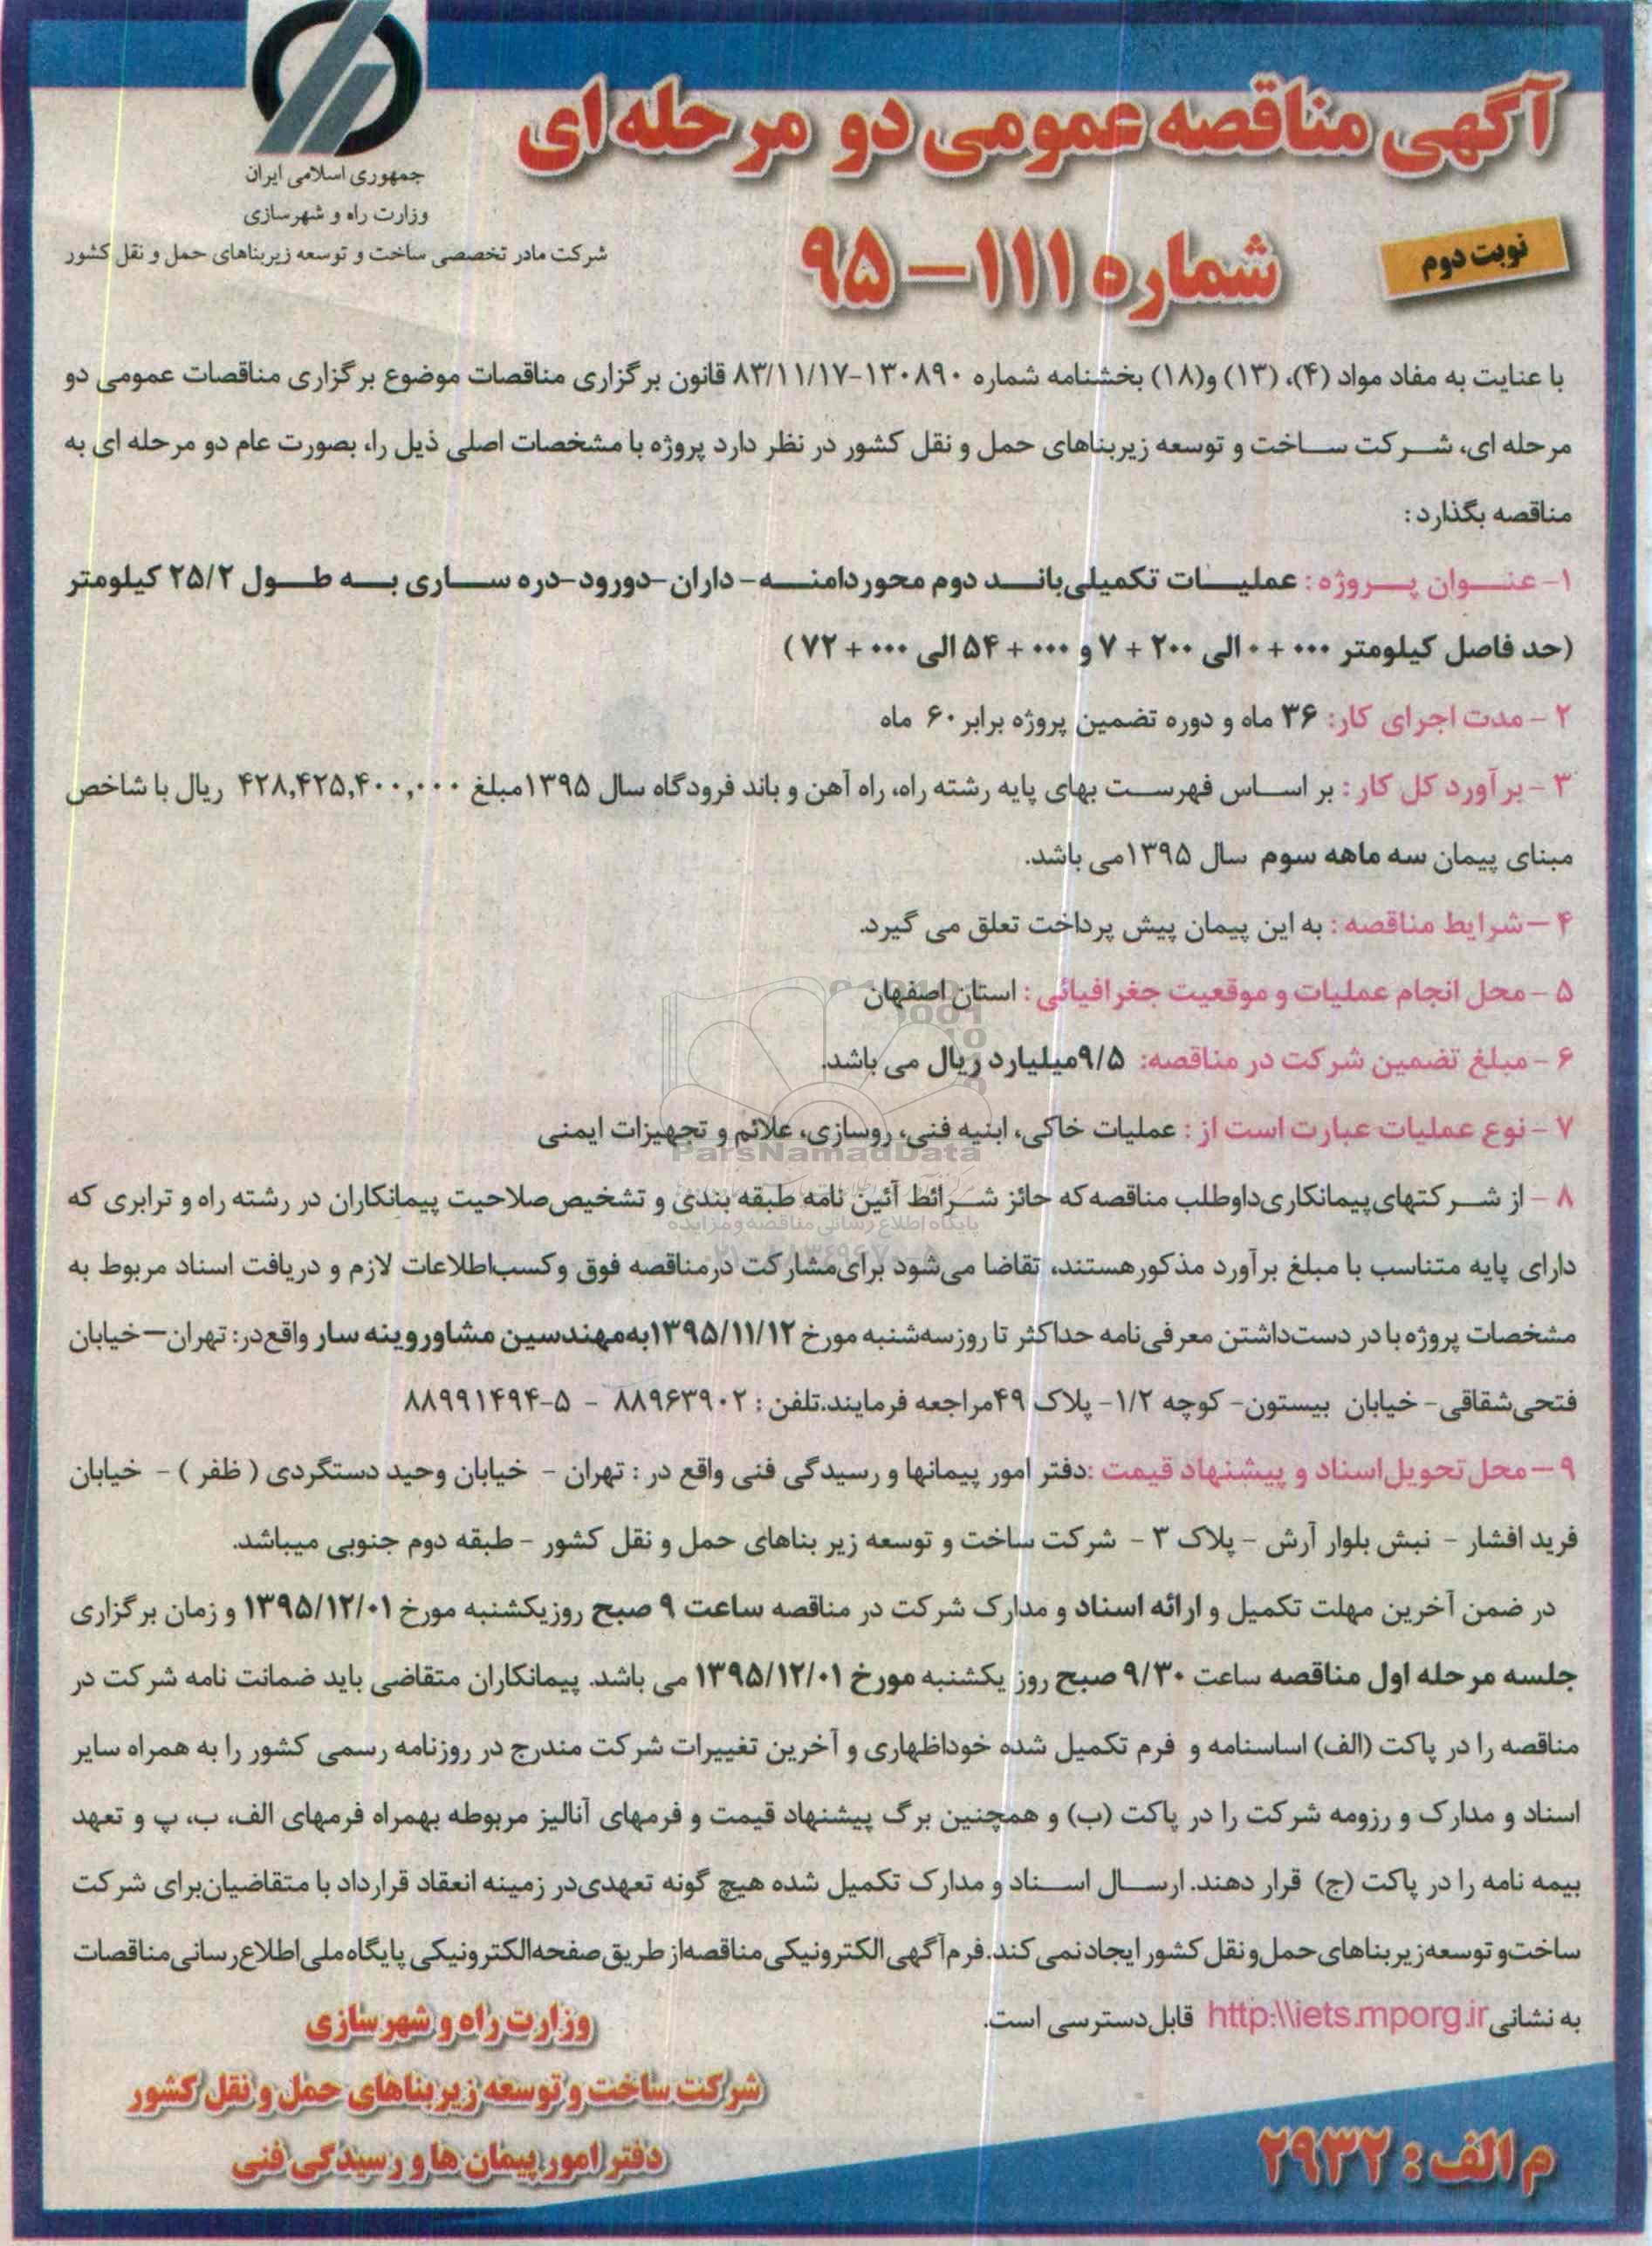 جمهوری اسلامی ایران
وزارت راه و شهرسازی
شرکت مادر تخصصی ساخت و توسعه زیربناهای حمل و نقل کشور
آگهی مناقصه عمومی دو مرحله ای
شماره ۱۱۱-۹۵
نوبت دوم
با عنایت به مفاد مواد (۴)، (۱۳) و(۱۸) بخشنامه شماره ۱۳۰۸۹۰-۸۳/۱۱/۱۷ قانون برگزاری مناقصات موضوع برگزاری مناقصات عمومی دو
مرحله ای، شرکت ساخت و توسعه زیربناهای حمل و نقل کشور در نظر دارد پروژه با مشخصات اصلی ذیل را، بصورت عام دو مرحله ای به
مناقصه بگذارد:
۱- عنوان پروژه: عملیات تکمیلی باند دوم محور دامنه- داران-دورود-دره ساری به طول ۲۵/۲ کیلومتر
(حد فاصل کیلومتر ۰۰۰ + ۰ الی ۲۰۰ + ۷ و ۰۰۰ + ۵۴ الی ۰۰۰ + ۷۲ )
۲ - مدت اجرای کار: ۳۶ ماه و دوره تضمین پروژه برابر ۶۰ ماه
۳ - برآورد کل کار: بر اساس فهرست بهای پایه رشته راه، راه آهن و باند فرودگاه سال ۱۳۹۵مبلغ ۴۲۸,۴۲۵,۴۰۰,۰۰۰ ریال با شاخص
مبنای پیمان سه ماهه سوم سال ۱۳۹۵می باشد.
۴ - شرایط مناقصه : به این پیمان پیش پرداخت تعلق می گیرد.
۵ - محل انجام عملیات و موقعیت جغرافیائی : استان اصفهان
۶ - مبلغ تضمین شرکت در مناقصه: ۹/۵میلیارد ریال می باشد.
۷ - نوع عملیات عبارت است از : عملیات خاکی، ابنیه فنی، روسازی، علائم و تجهیزات ایمنی
ParsNamadData
۸ - از شرکتهای پیمانکاری داوطلب مناقصه که حائز شرائط آئین نامه طبقه بندی و تشخیص صلاحیت پیمانکاران در رشته راه و ترابری که
پایگاه اطلاع رسانی مناقصه و مزایده
دارای پایه متناسب با مبلغ برآورد مذکور هستند، تقاضا می شود برای مشارکت در مناقصه فوق و کسب اطلاعات لازم و دریافت اسناد مربوط به
مشخصات پروژه با در دست داشتن معرفی نامه حداکثر تا روز سه شنبه مورخ ۱۳۹۵/۱۱/۱۲به مهندسین مشاور وینه سار واقع در: تهران- خیابان
فتحی شقاقی- خیابان بیستون- کوچه ۱/۲- پلاک ۴۹مراجعه فرمایند.تلفن : ۸۸۹۶۳۹۰۲ - ۵-۸۸۹۹۱۴۹۴
۹ - محل تحویل اسناد و پیشنهاد قیمت :دفتر امور پیمانها و رسیدگی فنی واقع در : تهران - خیابان وحید دستگردی ( ظفر ) - خیابان
فرید افشار - نبش بلوار آرش - پلاک ۳ - شرکت ساخت و توسعه زیر بناهای حمل و نقل کشور - طبقه دوم جنوبی میباشد.
در ضمن آخرین مهلت تکمیل و ارائه اسناد و مدارک شرکت در مناقصه ساعت ۹ صبح روز یکشنبه مورخ ۱۳۹۵/۱۲/۰۱ و زمان برگزاری
جلسه مرحله اول مناقصه ساعت ۹/۳۰ صبح روز یکشنبه مورخ ۱۳۹۵/۱۲/۰۱ می باشد. پیمانکاران متقاضی باید ضمانت نامه شرکت در
مناقصه را در پاکت (الف) اساسنامه و فرم تکمیل شده خوداظهاری و آخرین تغییرات شرکت مندرج در روزنامه رسمی کشور را به همراه سایر
اسناد و مدارک و رزومه شرکت را در پاکت (ب) و همچنین برگ پیشنهاد قیمت و فرمهای آنالیز مربوطه بهمراه فرمهای الف، ب، پ و تعهد
بیمه نامه را در پاکت (ج) قرار دهند. ارسال اسناد و مدارک تکمیل شده هیچ گونه تعهدی در زمینه انعقاد قرارداد با متقاضیان برای شرکت
ساخت و توسعه زیربناهای حمل و نقل کشور ایجاد نمی کند. فرم آگهی الکترونیکی مناقصه از طریق صفحه الکترونیکی پایگاه ملی اطلاع رسانی مناقصات
به نشانی http:\\iets.mporg.ir قابل دسترسی است.
وزارت راه و شهرسازی
شرکت ساخت و توسعه زیربناهای حمل و نقل کشور
دفتر امور پیمان ها و رسیدگی فنی
م الف : ۲۹۳۲